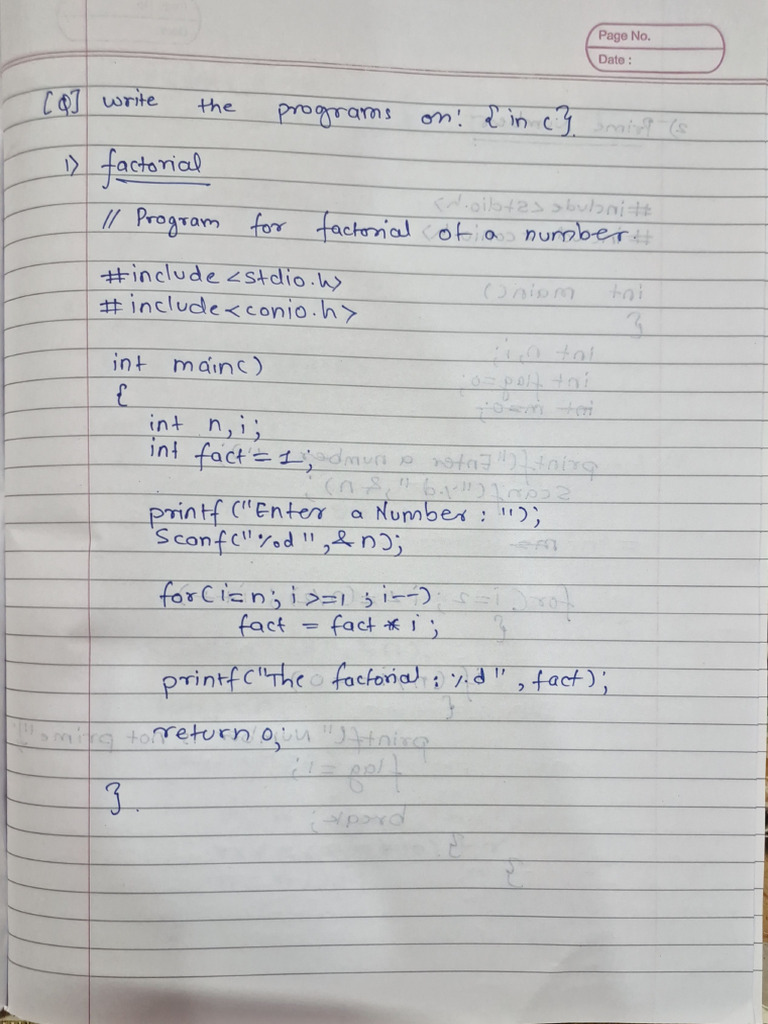 Page No.
Date :
[Q] write the programs on: {in c}
1) factorial
// Program for factorial of a number.
#include <stdio.h>
#include<conio.h>
int main()
{
int n,i;
int fact = 1;
printf ("Enter a Number : ");
Scanf("%d",&n);
for(i=n; i>=1 ; i--)
fact = fact * i ;
printf("The factorial : %d" , fact);
return 0;
}.